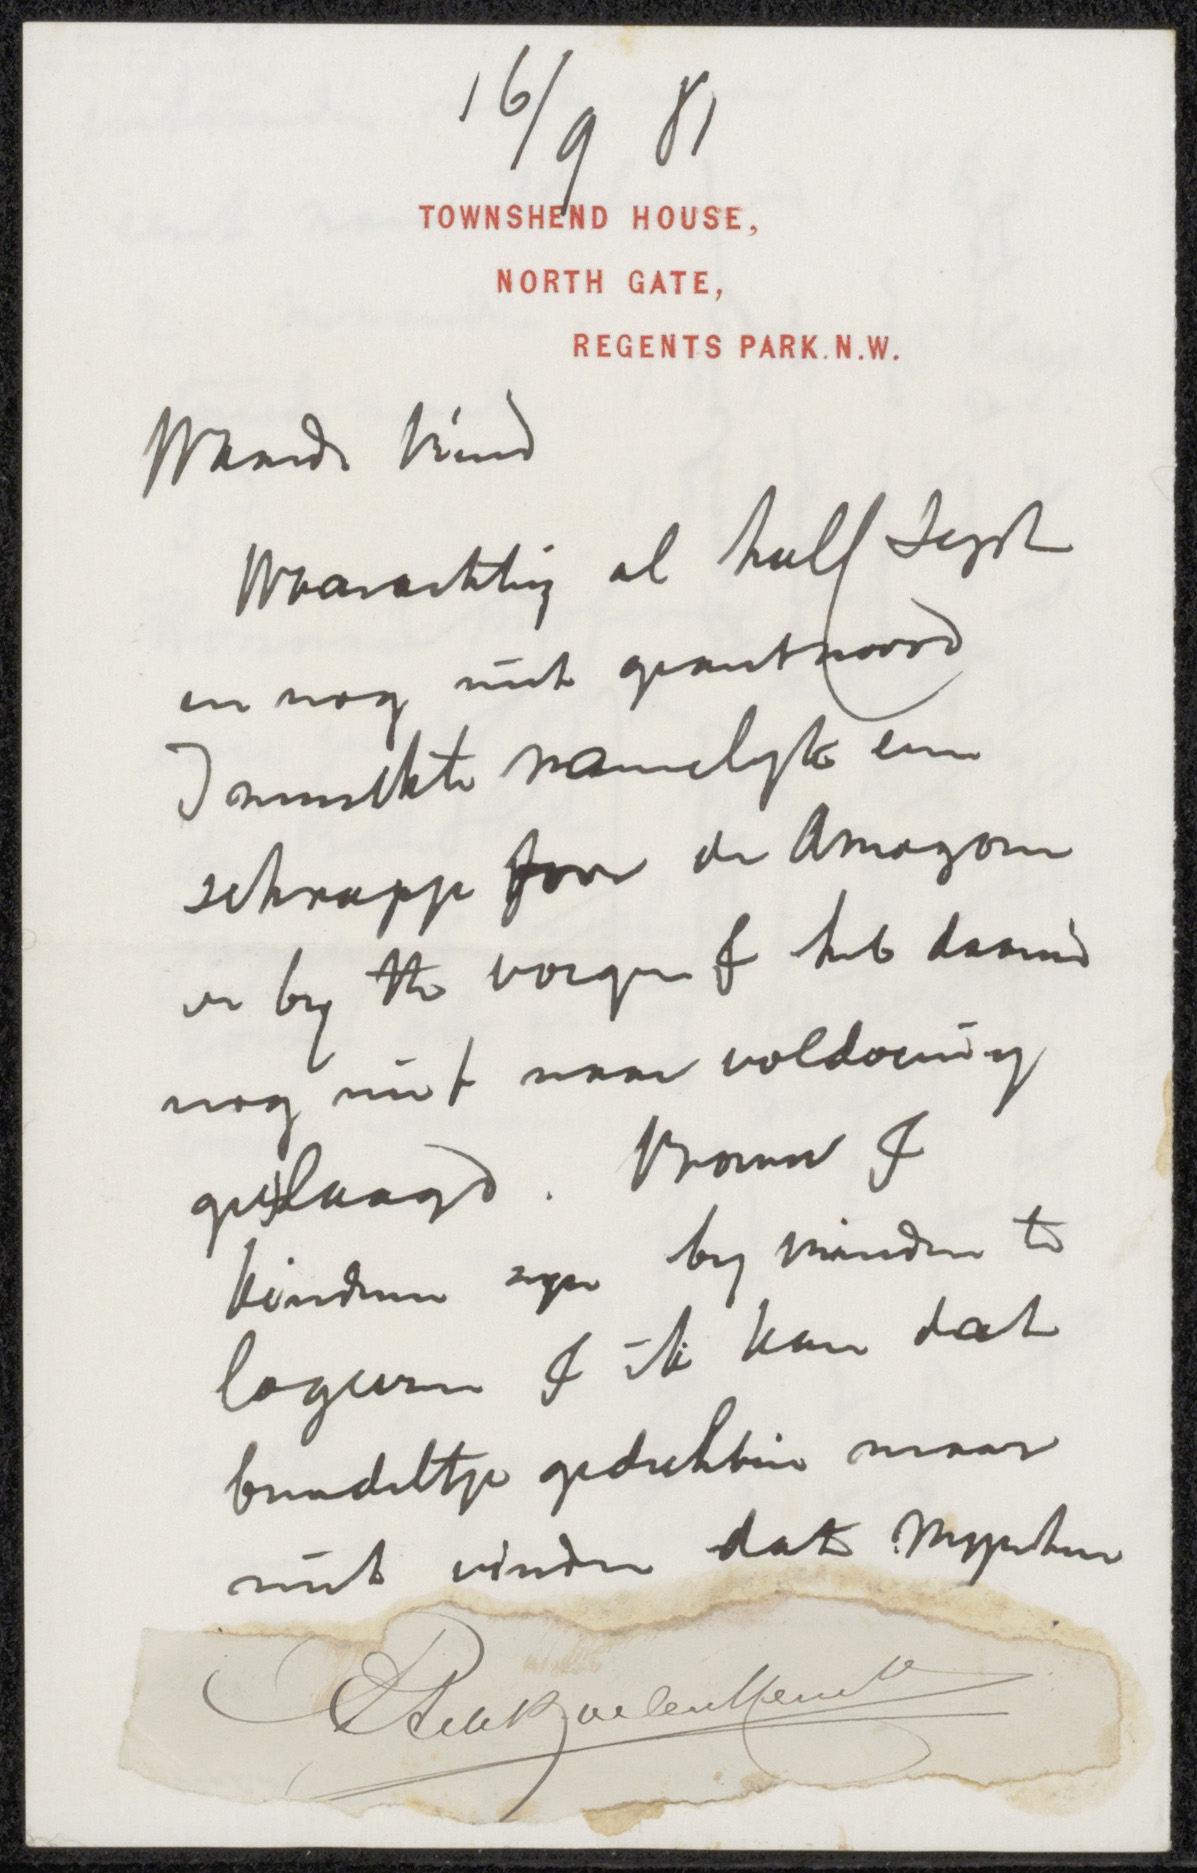 16/9 81
TOWNSHEND HOUSE,
NORTH GATE,
REGENTS PARK.N.W.
Waarde Vriend
Waarachtig al half Sept
en nog niet geantwoord
Ik namelijk een
schrapje voor de Amazone
er by te voegen & heb daarin
nog niet naar voldoening
geslaagd. Vrouw &
kinderen zyn by vrienden te
logeeren & ik kan dat
bundeltje gedichten maar
niet vinden dat